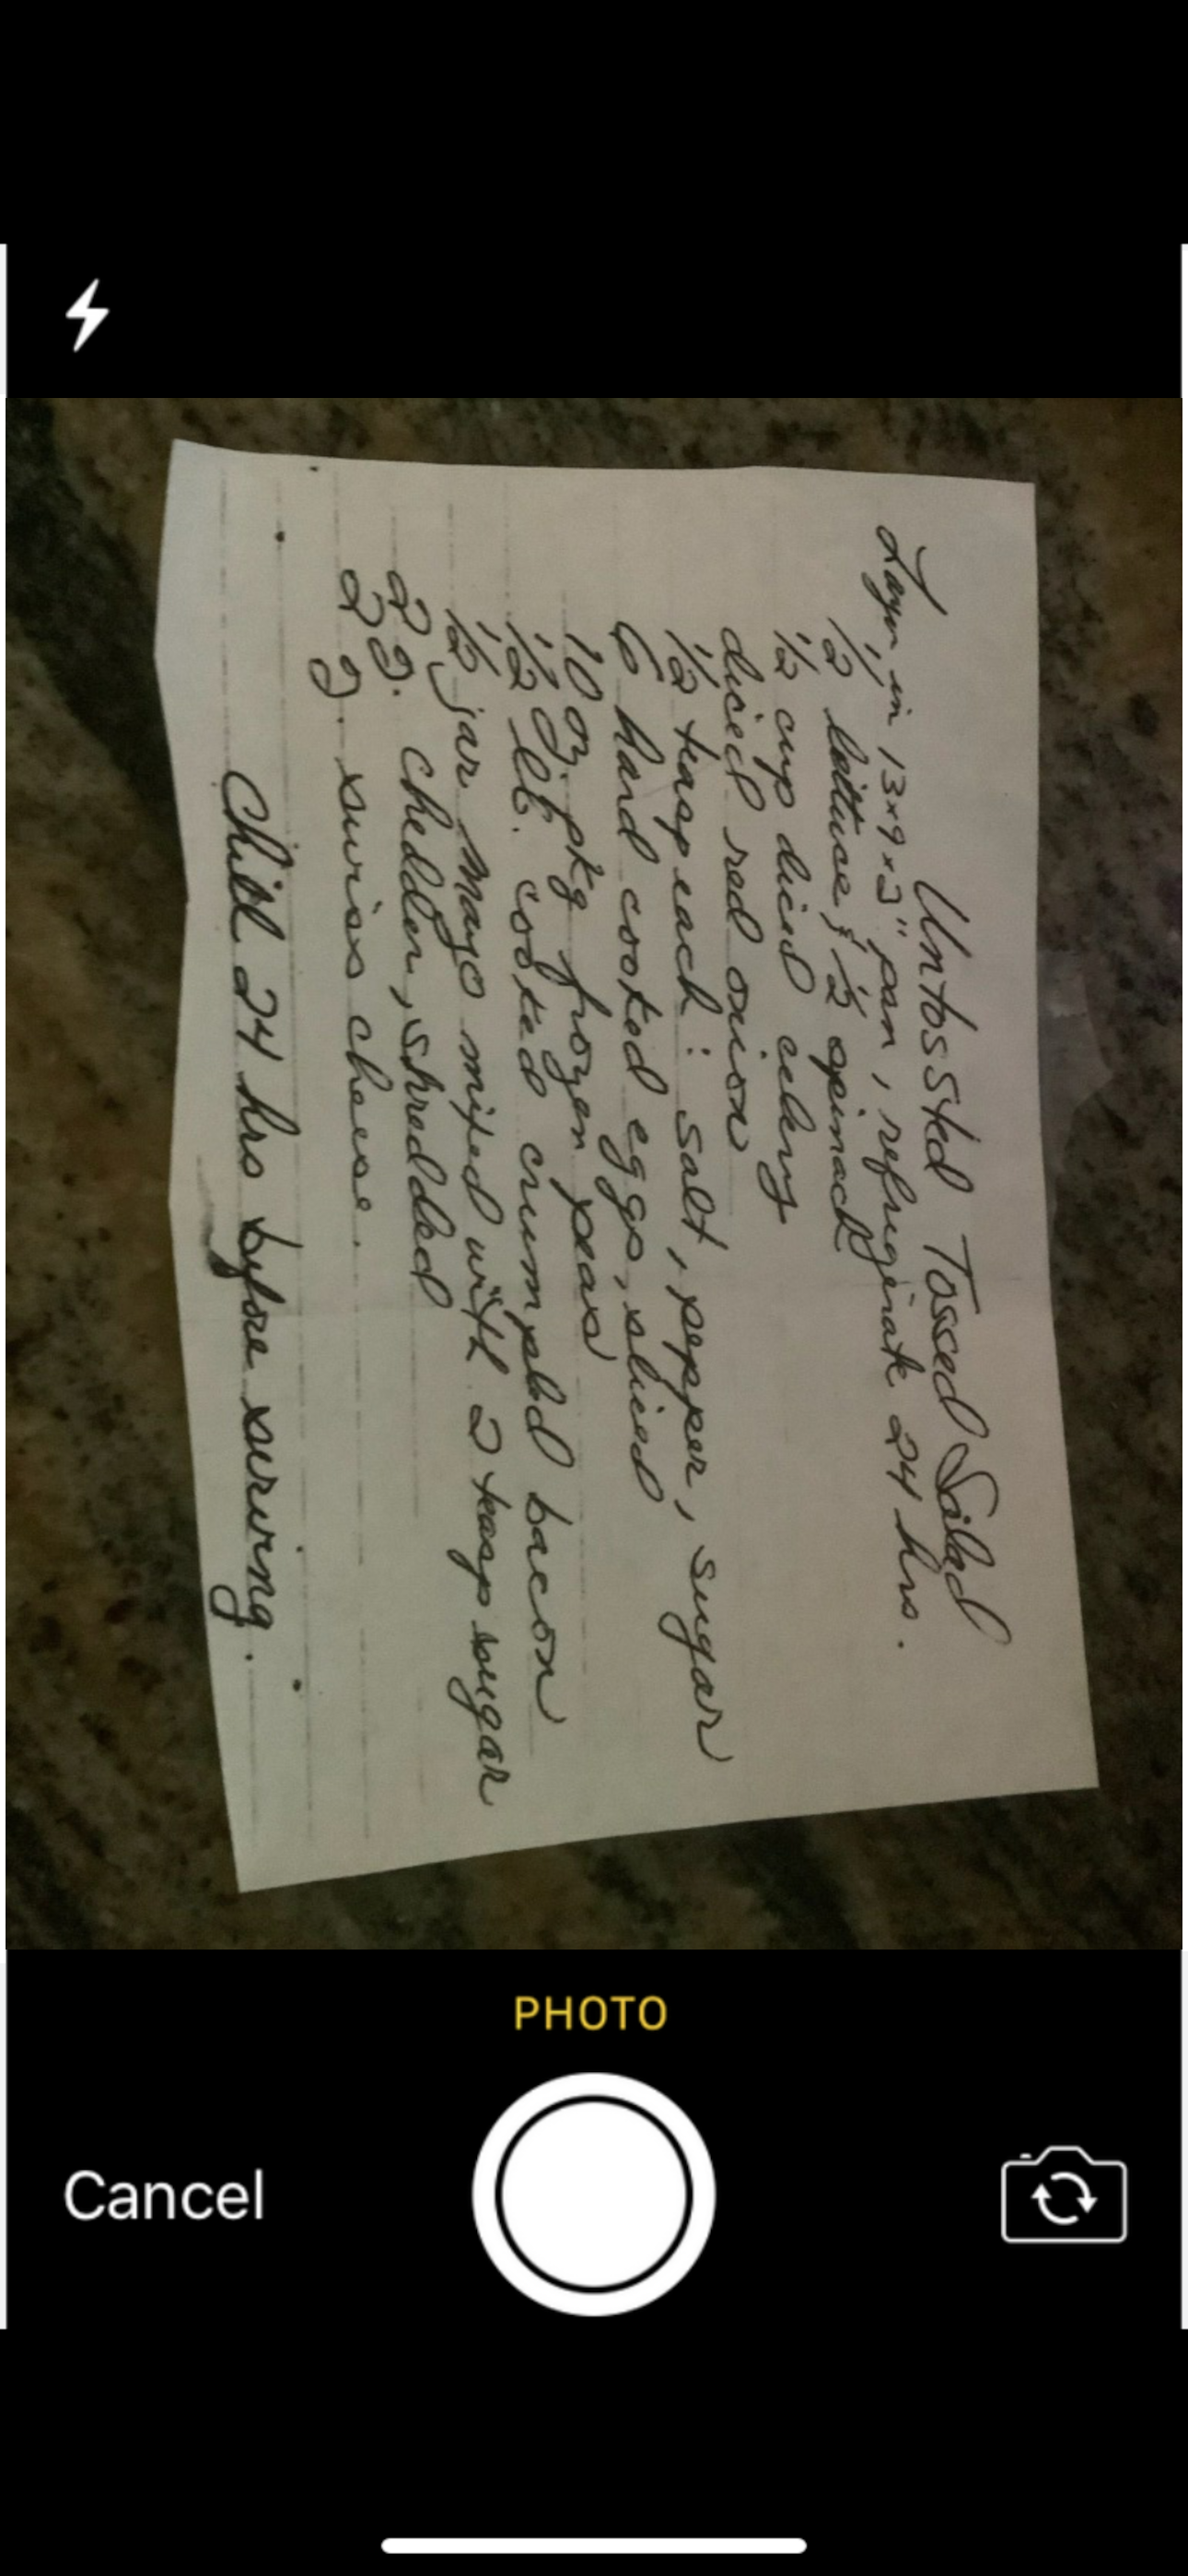 Untossted Tossed Salad
Layer in 13x9x3" pan, refrigerate 24 hrs.
1/2 lettuce & 1/2 spinach
1/2 cup diced celery
diced red onion
1/2 teasp each: salt, pepper, sugar
6 hard cooked eggs, sliced
10 oz. pkg frozen peas
1/2 lb. cooked crumpled bacon
1/2 jar mayo mixed with 2 teasp sugar
2 g. chedder, shredded
2 g. swiss cheese.
Chill 24 hrs before serving.
PHOTO
Cancel